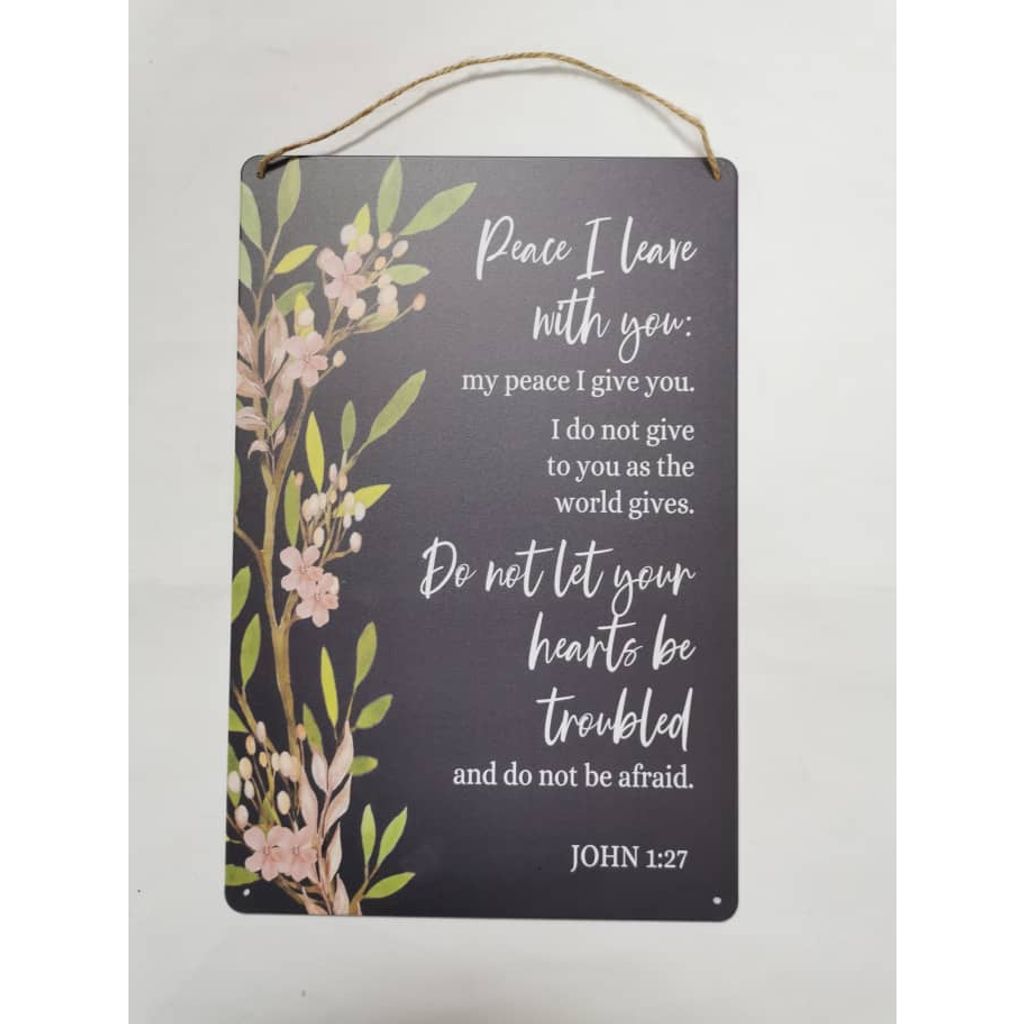 Peace I leave
with you:
my peace I give you.
I do not give
to you as the
world gives.
Do not let your
hearts be
troubled
and do not be afraid.
JOHN 1:27